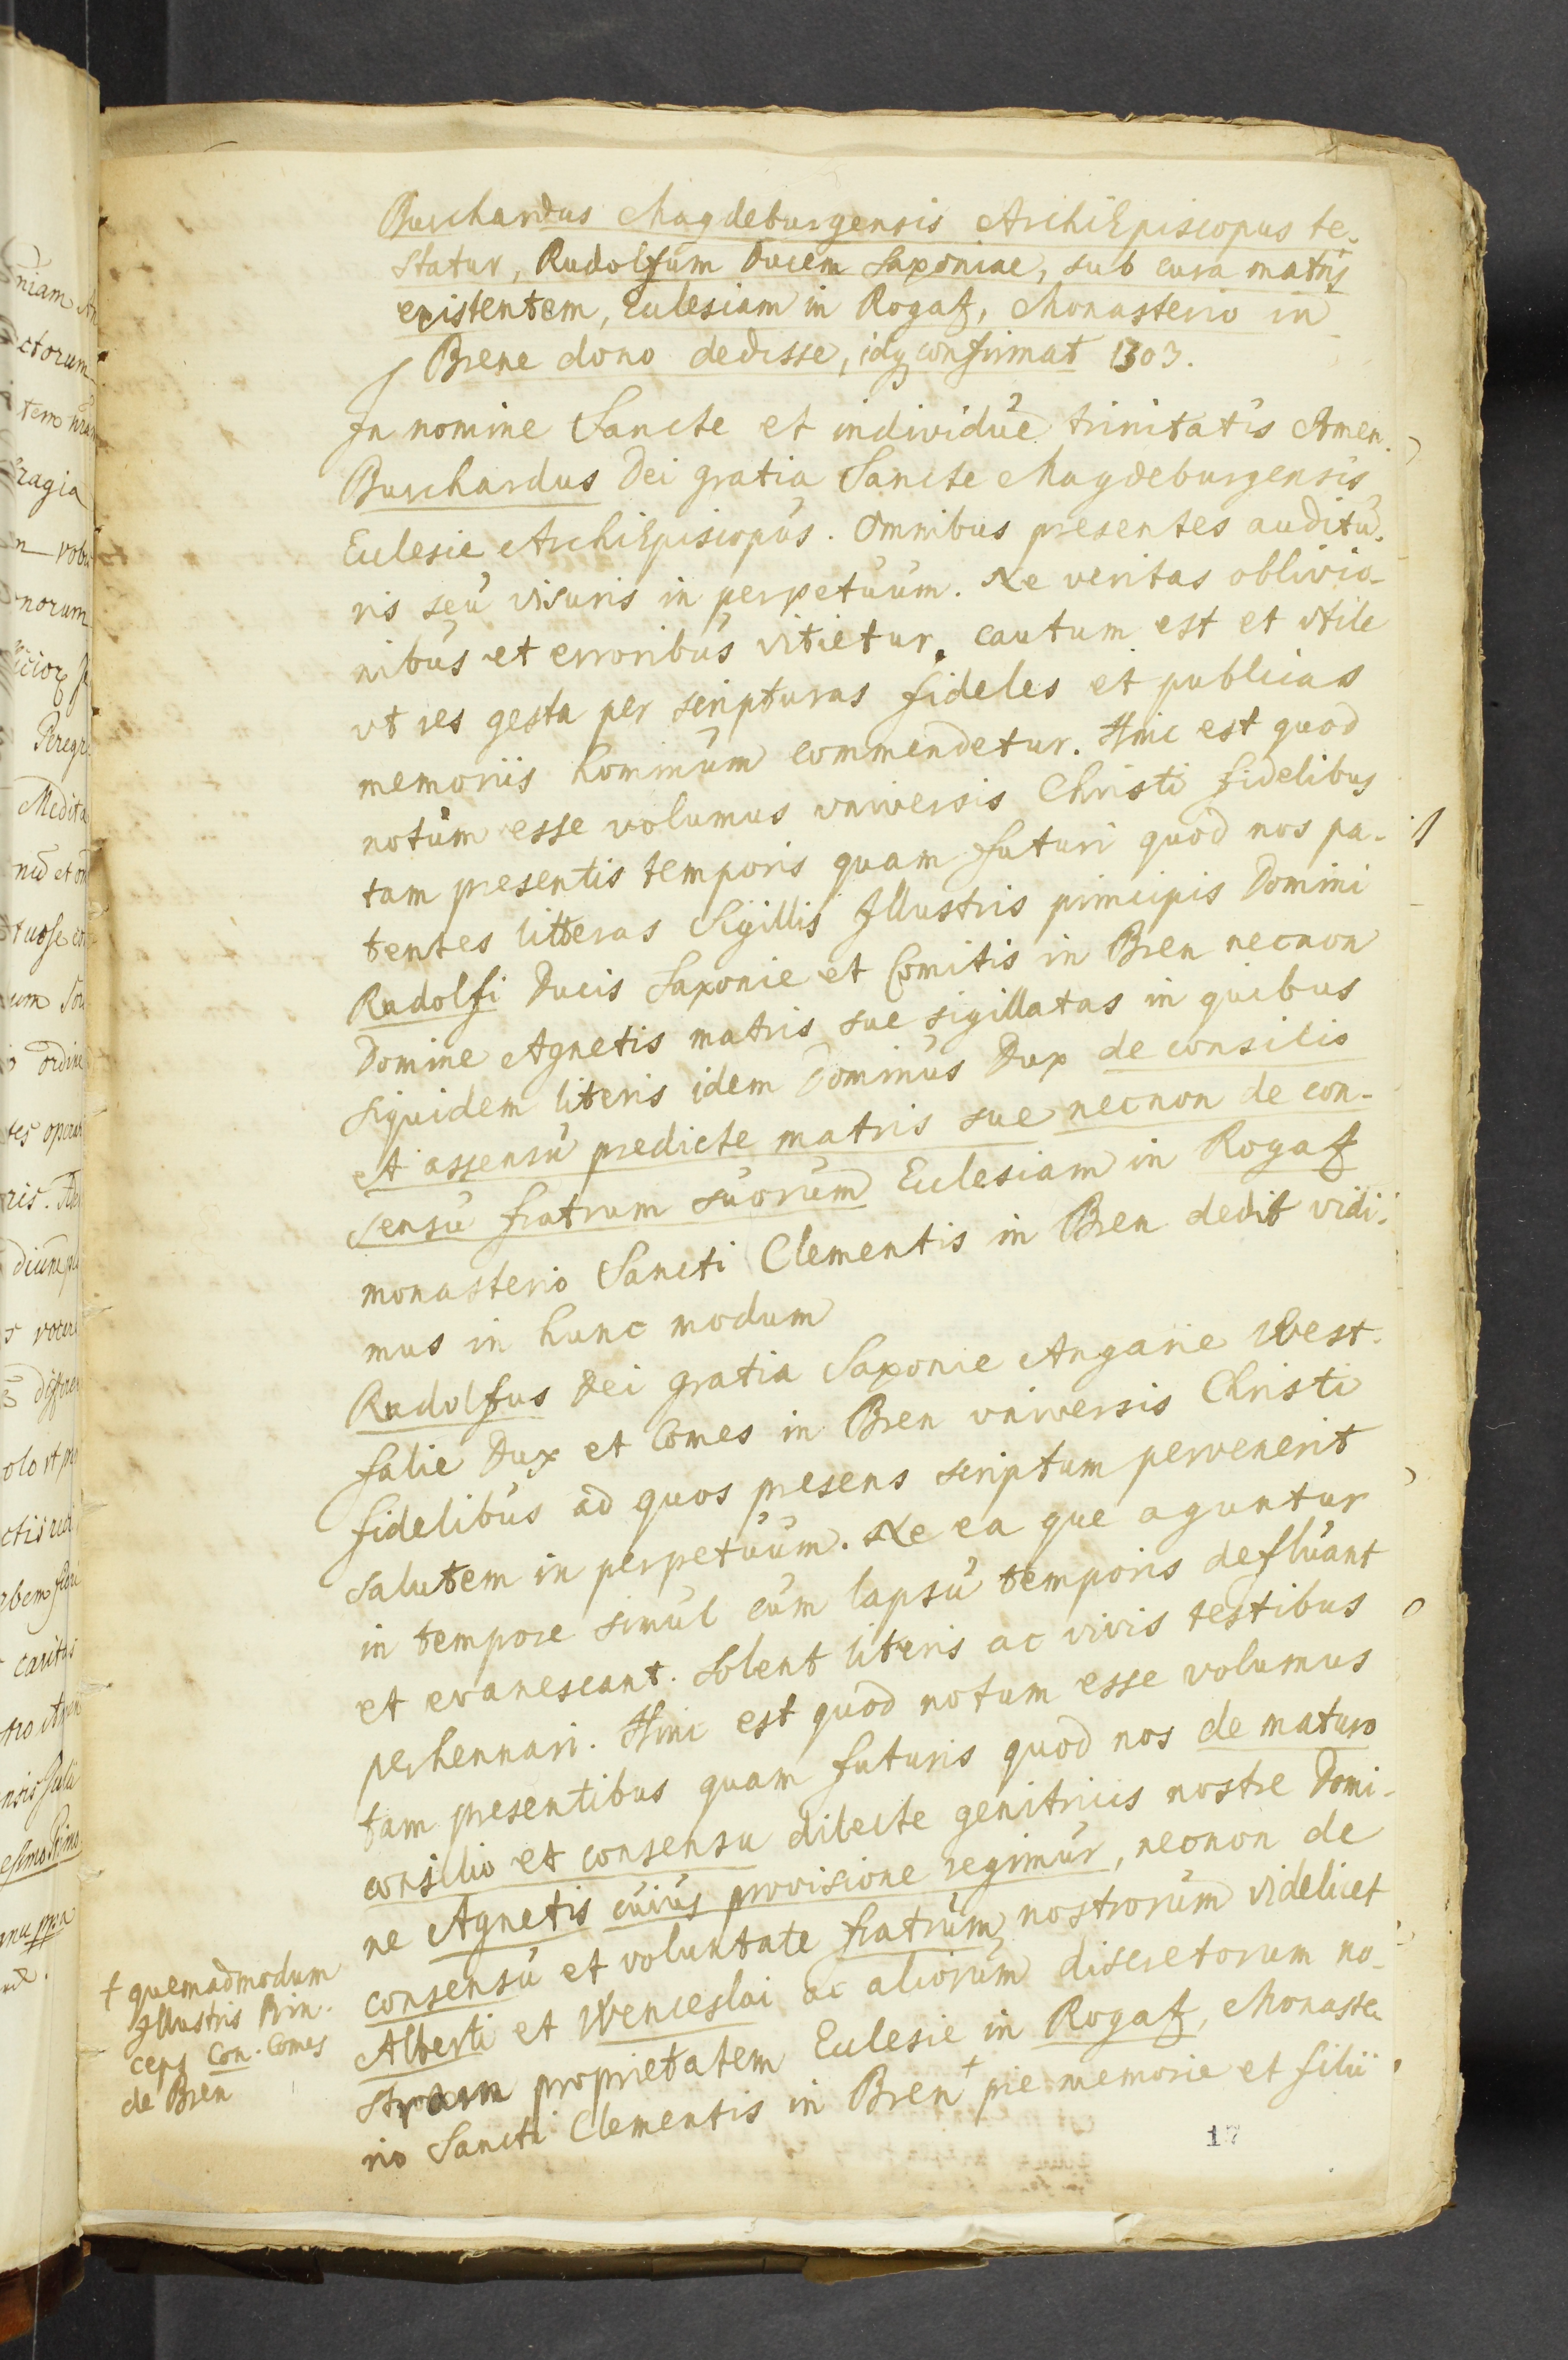 Burchardus Magdeburgensis ArchiEpiscopus te-
statur, Rudolfum Ducem Saxoniae, sub cura matris
existentem, Eclesiam in Rogatz, Monasterio in
Brene dono dedisse, idq confirmat 1303.
In nomine Sancte et individue trinitatis Amen.
Burchardus Dei gratia Sancte Magdeburgensis
Eclesie ArchiEpiscopus. Omnibus presentes auditu-
ris seu visuris in perpetuum. Ne veritas oblivio-
nibus et erroribus vitietur, cautum est et vtile
vt res gesta per scripturas fideles et publicas
memoriis hominum commendetur. Hinc est quod
notum esse volumus vniversis Christi fidelibus
tam presentis temporis quam futuri quod nos pa-
tentes litteras Sigillis Illustris principis Domini
Rudolfi Ducis Saxonie et Comitis in Bren necnon
Domine Agnetis matris sue sigillatas in quibus
siquidem literis idem Dominus Dux de consilio
et assensu predicte matris sue necnon de con-
sensu fratrum suorum Eclesiam in Rogatz
monasterio Sancti Clementis in Bren dedit vidi-
mus in hunc modum
Rudolfus Dei gratia Saxonie Angarie West-
falie Dux et Comes in Bren vniversis Christi
fidelibus ad quos presens scriptum pervenerit
salutem in perpetuum. Ne ea que aguntur
in tempore simul cum lapsu temporis defluant
et evanescant. Solent literis ac vivis testibus
perhennari. Hinc est quod notum esse volumus
tam presentibus quam futuris quod nos de maturo
consilio et consensu dilecte genitricis nostre Domi-
ne Agnetis cuius provisione regimur, necnon de
consensu et voluntate fratrum nostrorum videlicet
Alberti et Wenceslai ac aliorum discretorum no-
strorum proprietatem Eclesie in Rogatz, Monaste-
rio Sancti Clementis in Bren + pie memorie et filii
+ quemadmodum
Illustris Prin-
ceps Con. Comes
de Bren
17